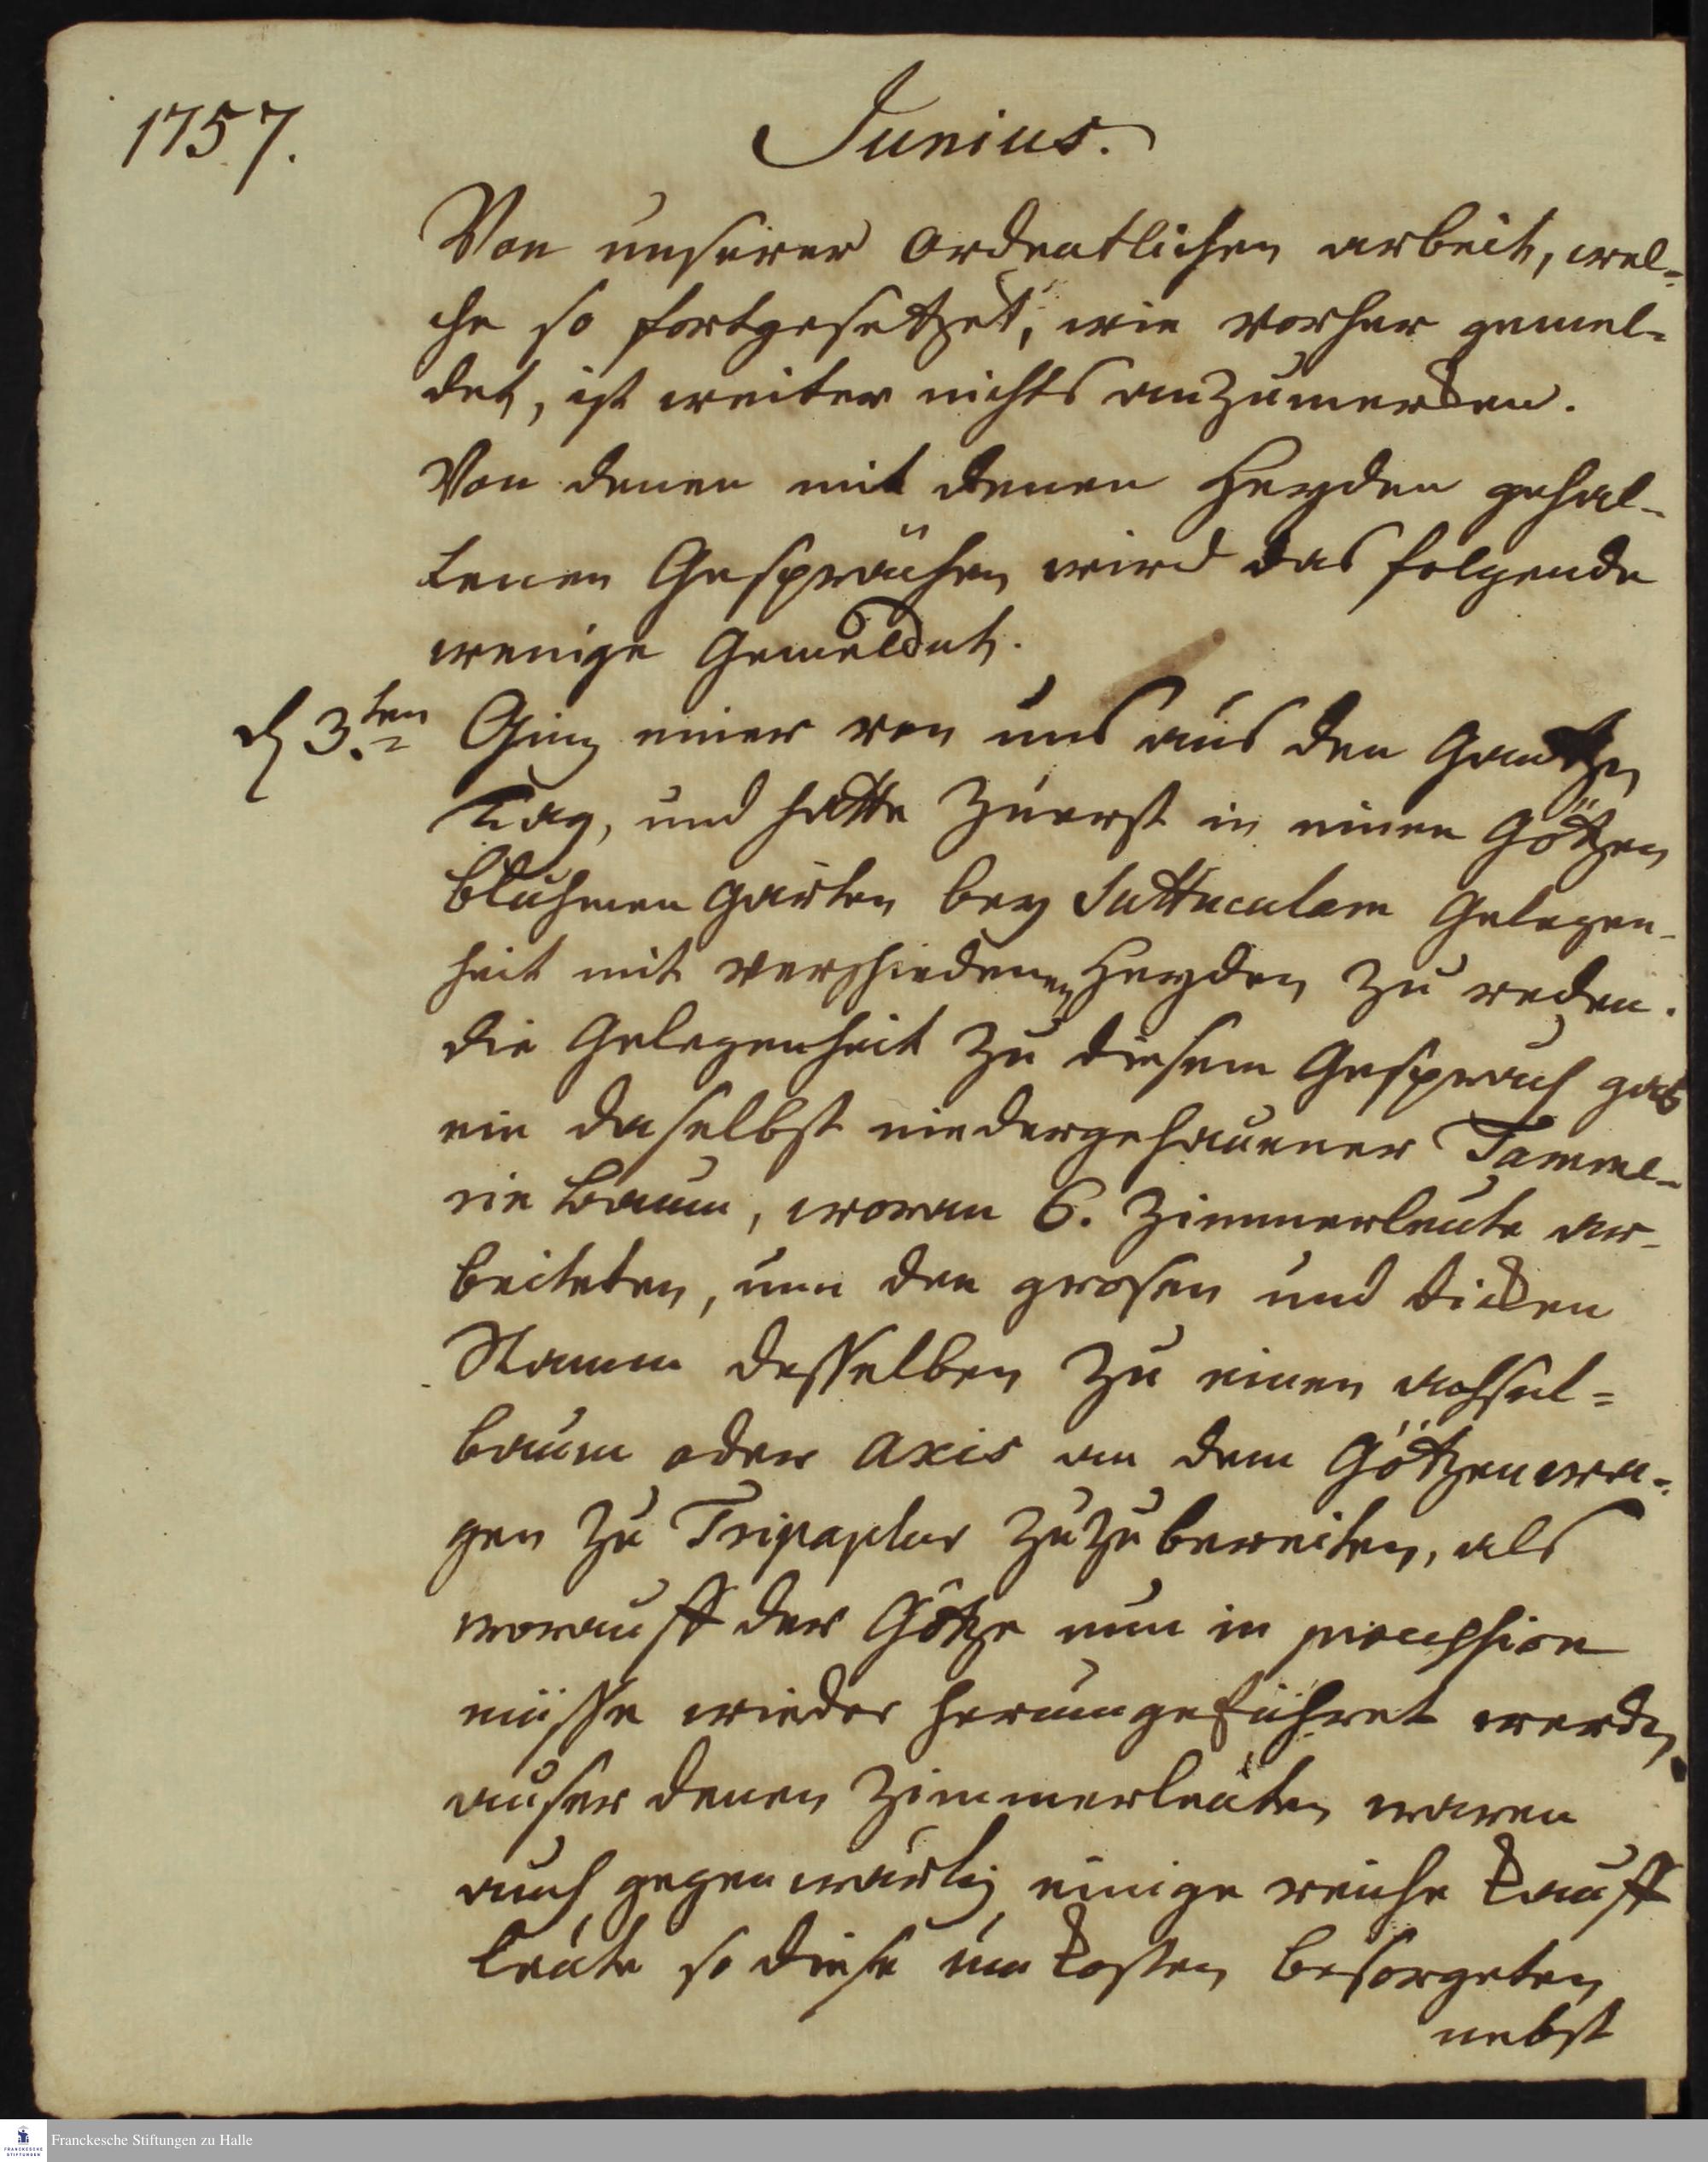 1757.
Junius.
Von unserer ordentlichen arbeit, wel-
che so fortgesetzet, wie vorher gemel-
det, ist weiter nichts anzumercken.
Von denen mit denen Heyden gehal-
tenen Gesprächen wird das folgende
wenige Gemeldet.
d 3.ten Ging einer von uns aus den Gantzen
Tag, und hatte zuerst in einen Götzen
bluhmen garten bey Suttuculam Gelegen-
heit mit verschiedenen Heyden zu reden.
die Gelegenheit zu diesem Gespräch gab
ein daselbst niedergehauener Tamme-
rie baum, woran 6. Zimmerleute ar-
beiteten, um den grosen und dicken
Stamm desselben zu einen achsel-
baum oder axis an dem Götzenwa-
gen zu Tripaplur zuzubereiten, als
worauff der Götze nun in procession
müsse wieder herumgeführet werden
auser denen Zimmerleuten waren
auch gegenwärtig einige reiche Kauff
leute so diese un kosten besorgeten
nebst
Franckesche Stiftungen zu Halle
FRANCKESCHE
STIFTUNGEN